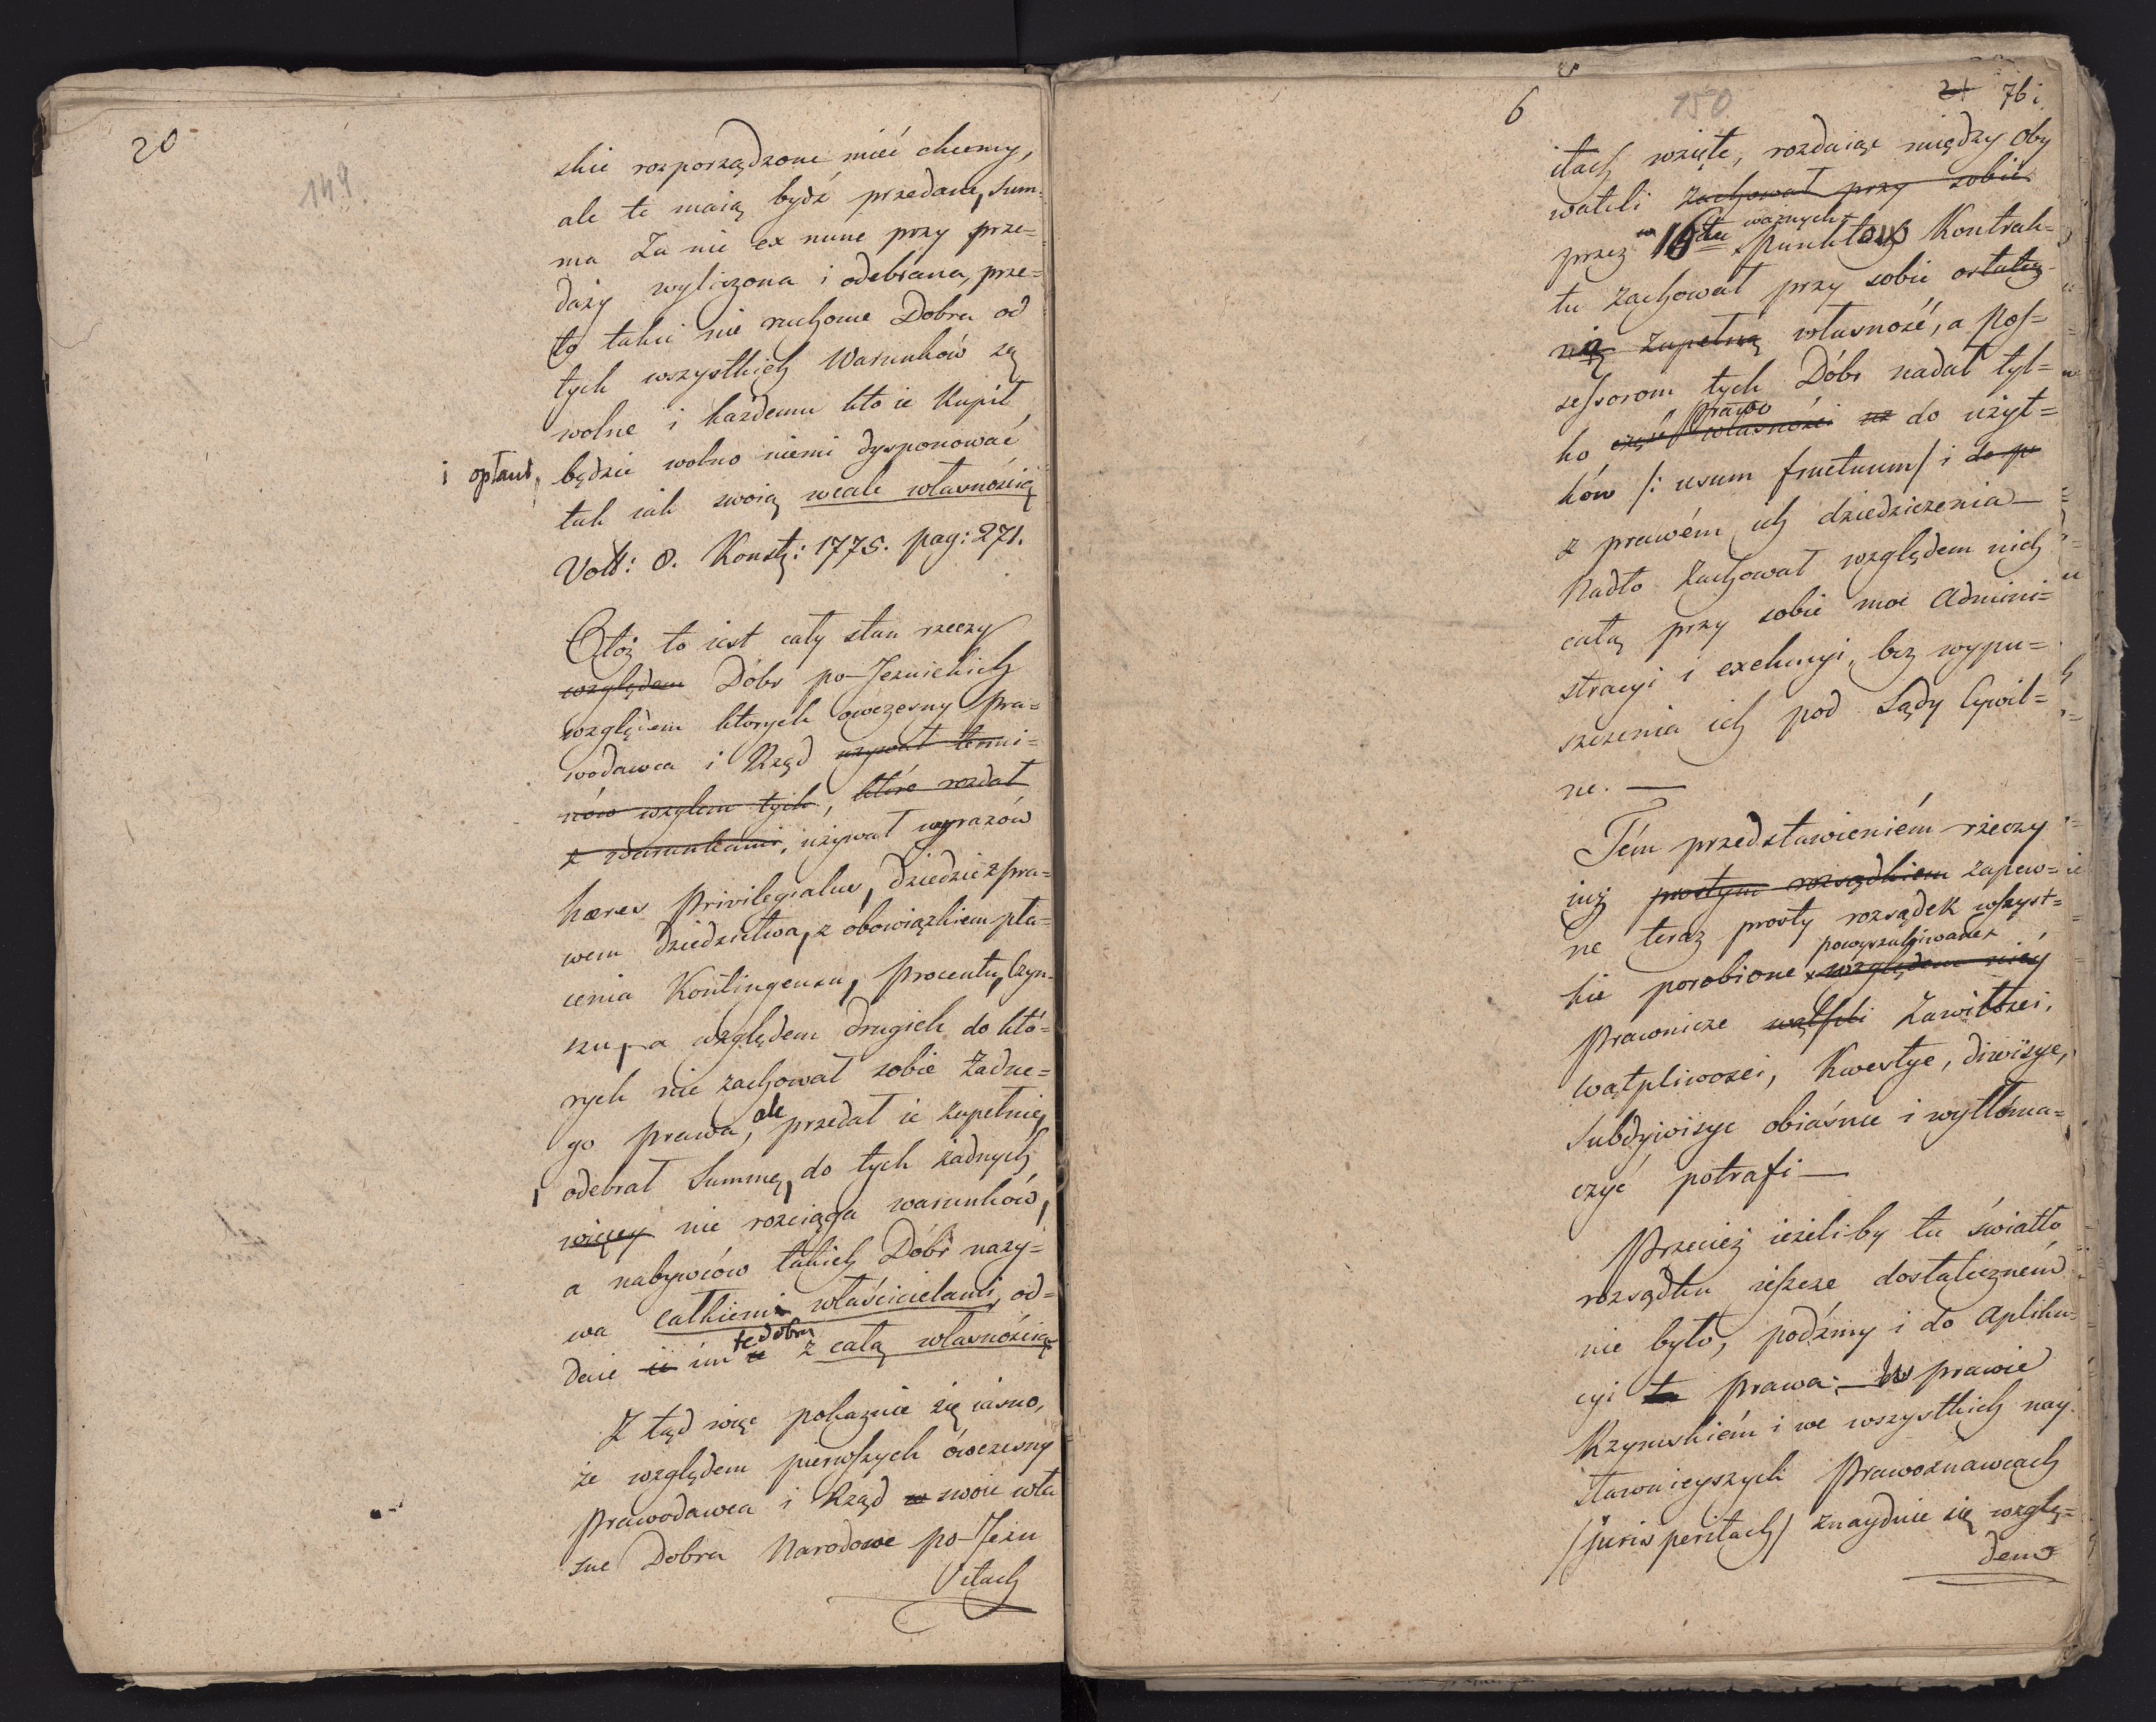 20
149.
skie rozporządzone mieć chcemy,
ale te maią bydź przedane, sum=
ma za nie ex nunc przy prze=
daży wyliczona i odebrana, prze=
to takie nie ruchome Dobra od
tych wszystkich Warunków są
wolne i każdemu kto ie Kupił
i opłaci, będzie wolno niemi dysponować
tak iak swoią wcale własnością
Voll: 8. Konst: 1775. pag: 271.
Otóż to iest cały stan rzeczy
względem Dóbr po-Jezuickich
względem ktorych ówczesny Pra=
wodawca i Rząd używał termi=
nów wzglem tych, które rozdał
z warunkami, używał wyrazów
hæres Privilegialus, dziedzic z pra=
wem dziedzictwa, z obowiązkiem pła=
cenia Kontingensu, Procentu, Czyn=
szu, a względem drugich do któ=
rych nie zachował sobie żadne=
go prawa, ale przedał ie zupełnie,
odebrał Summę, do tych żadnych
więcey nie rozciąga warunków,
a nabywców takich Dóbr nazy=
wa całkiemi właścicielami, od=
daie ie im te dobra z całą własnością
Z tąd więc pokazuie się iasno,
że względem pierwszych ówczesny
Prawodawca i Rząd w swoie wła
sne Dobra Narodowe po-Jezu
itach
6
150.
21 76 i
itach wzięte, rozdaiąc między Oby
wateli zachował przy sobie
przez w 16tu ważnych Punktach Kontrak=
tu zachował przy sobie ostatecz=
nią zupełną własność, a Pos=
sessorom tych Dóbr nadał tyl=
ko część własności Prawo uż do użyt=
ków /: usum fructuum / i do pr
z prawém ich dziedziczenia —
Nadto zachował względem nich
całą przy sobie moc Admini=
stracyi i exekucyi, bez wypu=
szczenia ich pod Sądy Cywil=
ne. —
Tém przedstawieniém rzeczy
iuż prostym rozsądkiem zapew=
ne teraz prosty rozsądek wszyst=
kie porobione powyszukiwane względem niey
Prawnicze wątpli Zawiłości,
wątpliwości, Kwestye, diwisye,
Subdywisye obiaśnić i wytłóma=
czyć potrafi —
Przecież ieżeli-by tu światło
rozsądku ieszcze dostateczném
nie było, podźmy i do Aplika=
cyi to Prawa. — W prawie
Rzymskiém i we wszystkich nay=
sławnieyszych Prawoznawcach
/ juris peritach / znayduie się wzglę=
dem